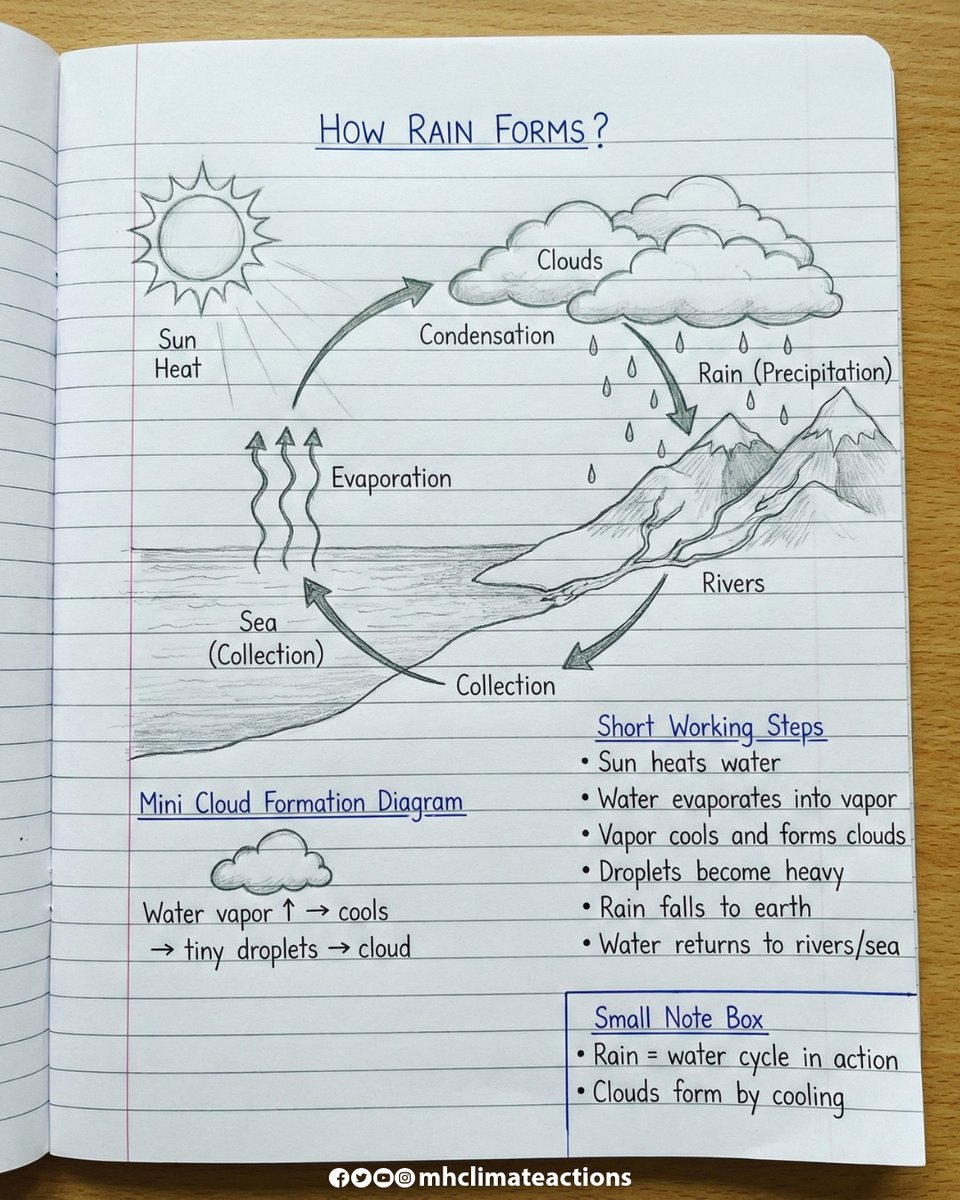 How Rain Forms?
Sun
Heat
Clouds
Condensation
Rain (Precipitation)
Evaporation
Rivers
Sea
(Collection)
Collection
Short Working Steps
• Sun heats water
• Water evaporates into vapor
• Vapor cools and forms clouds
• Droplets become heavy
• Rain falls to earth
• Water returns to rivers/sea
Mini Cloud Formation Diagram
Water vapor ↑ → cools
→ tiny droplets → cloud
Small Note Box
• Rain = water cycle in action
• Clouds form by cooling
mhclimateactions